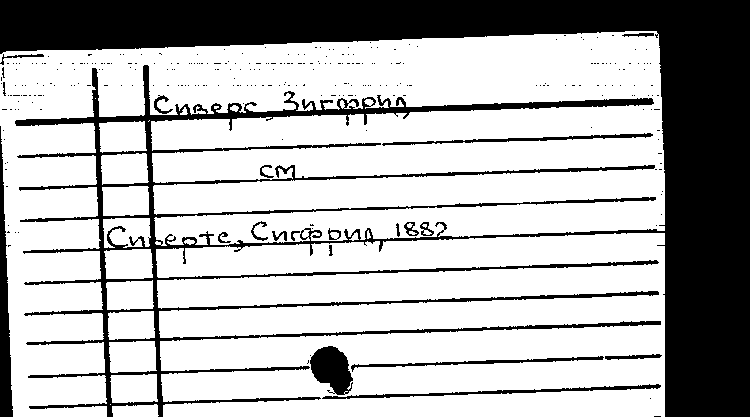 Сиверс, Зигфрид
см.
Сиверте, Сигфрид, 1882